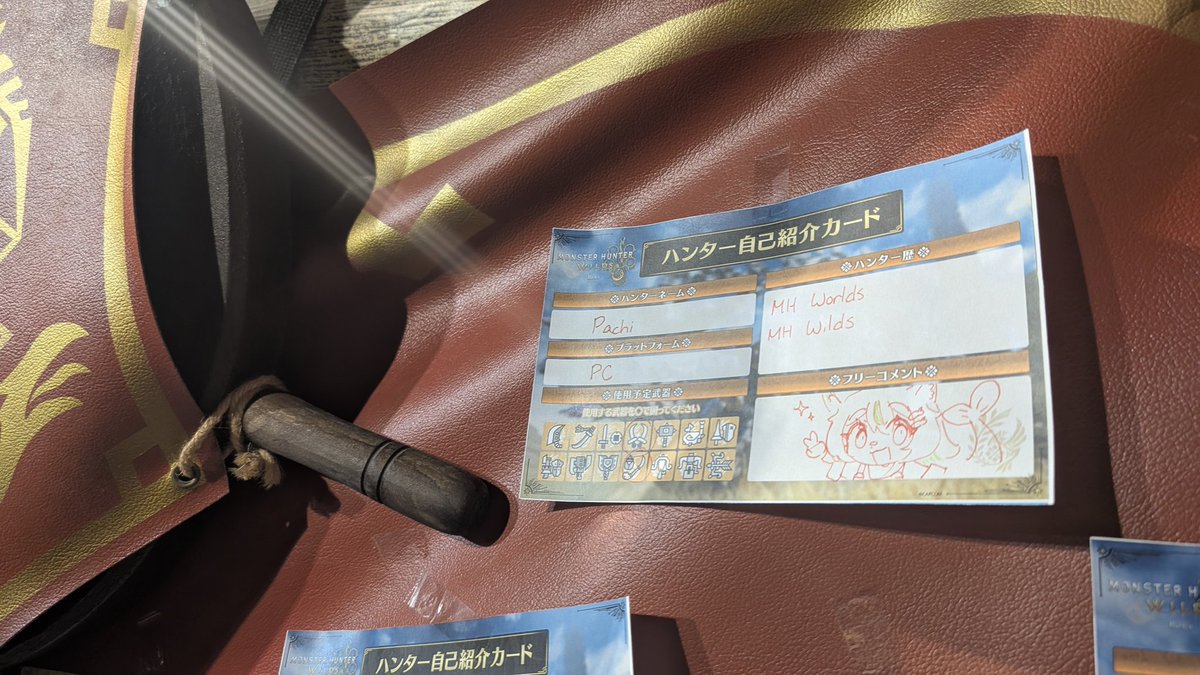 MONSTER HUNTER
WILDS
ハンター自己紹介カード
❖ハンターネーム❖
Pachi
❖プラットフォーム❖
PC
❖使用予定武器❖
使用する武器を〇で囲ってください
❖ハンター歴❖
MH Worlds
MH Wilds
❖フリーコメント❖
©CAPCOM
MONSTER HUNTER
WILDS
ハンター自己紹介カード
MONSTER H
WIL